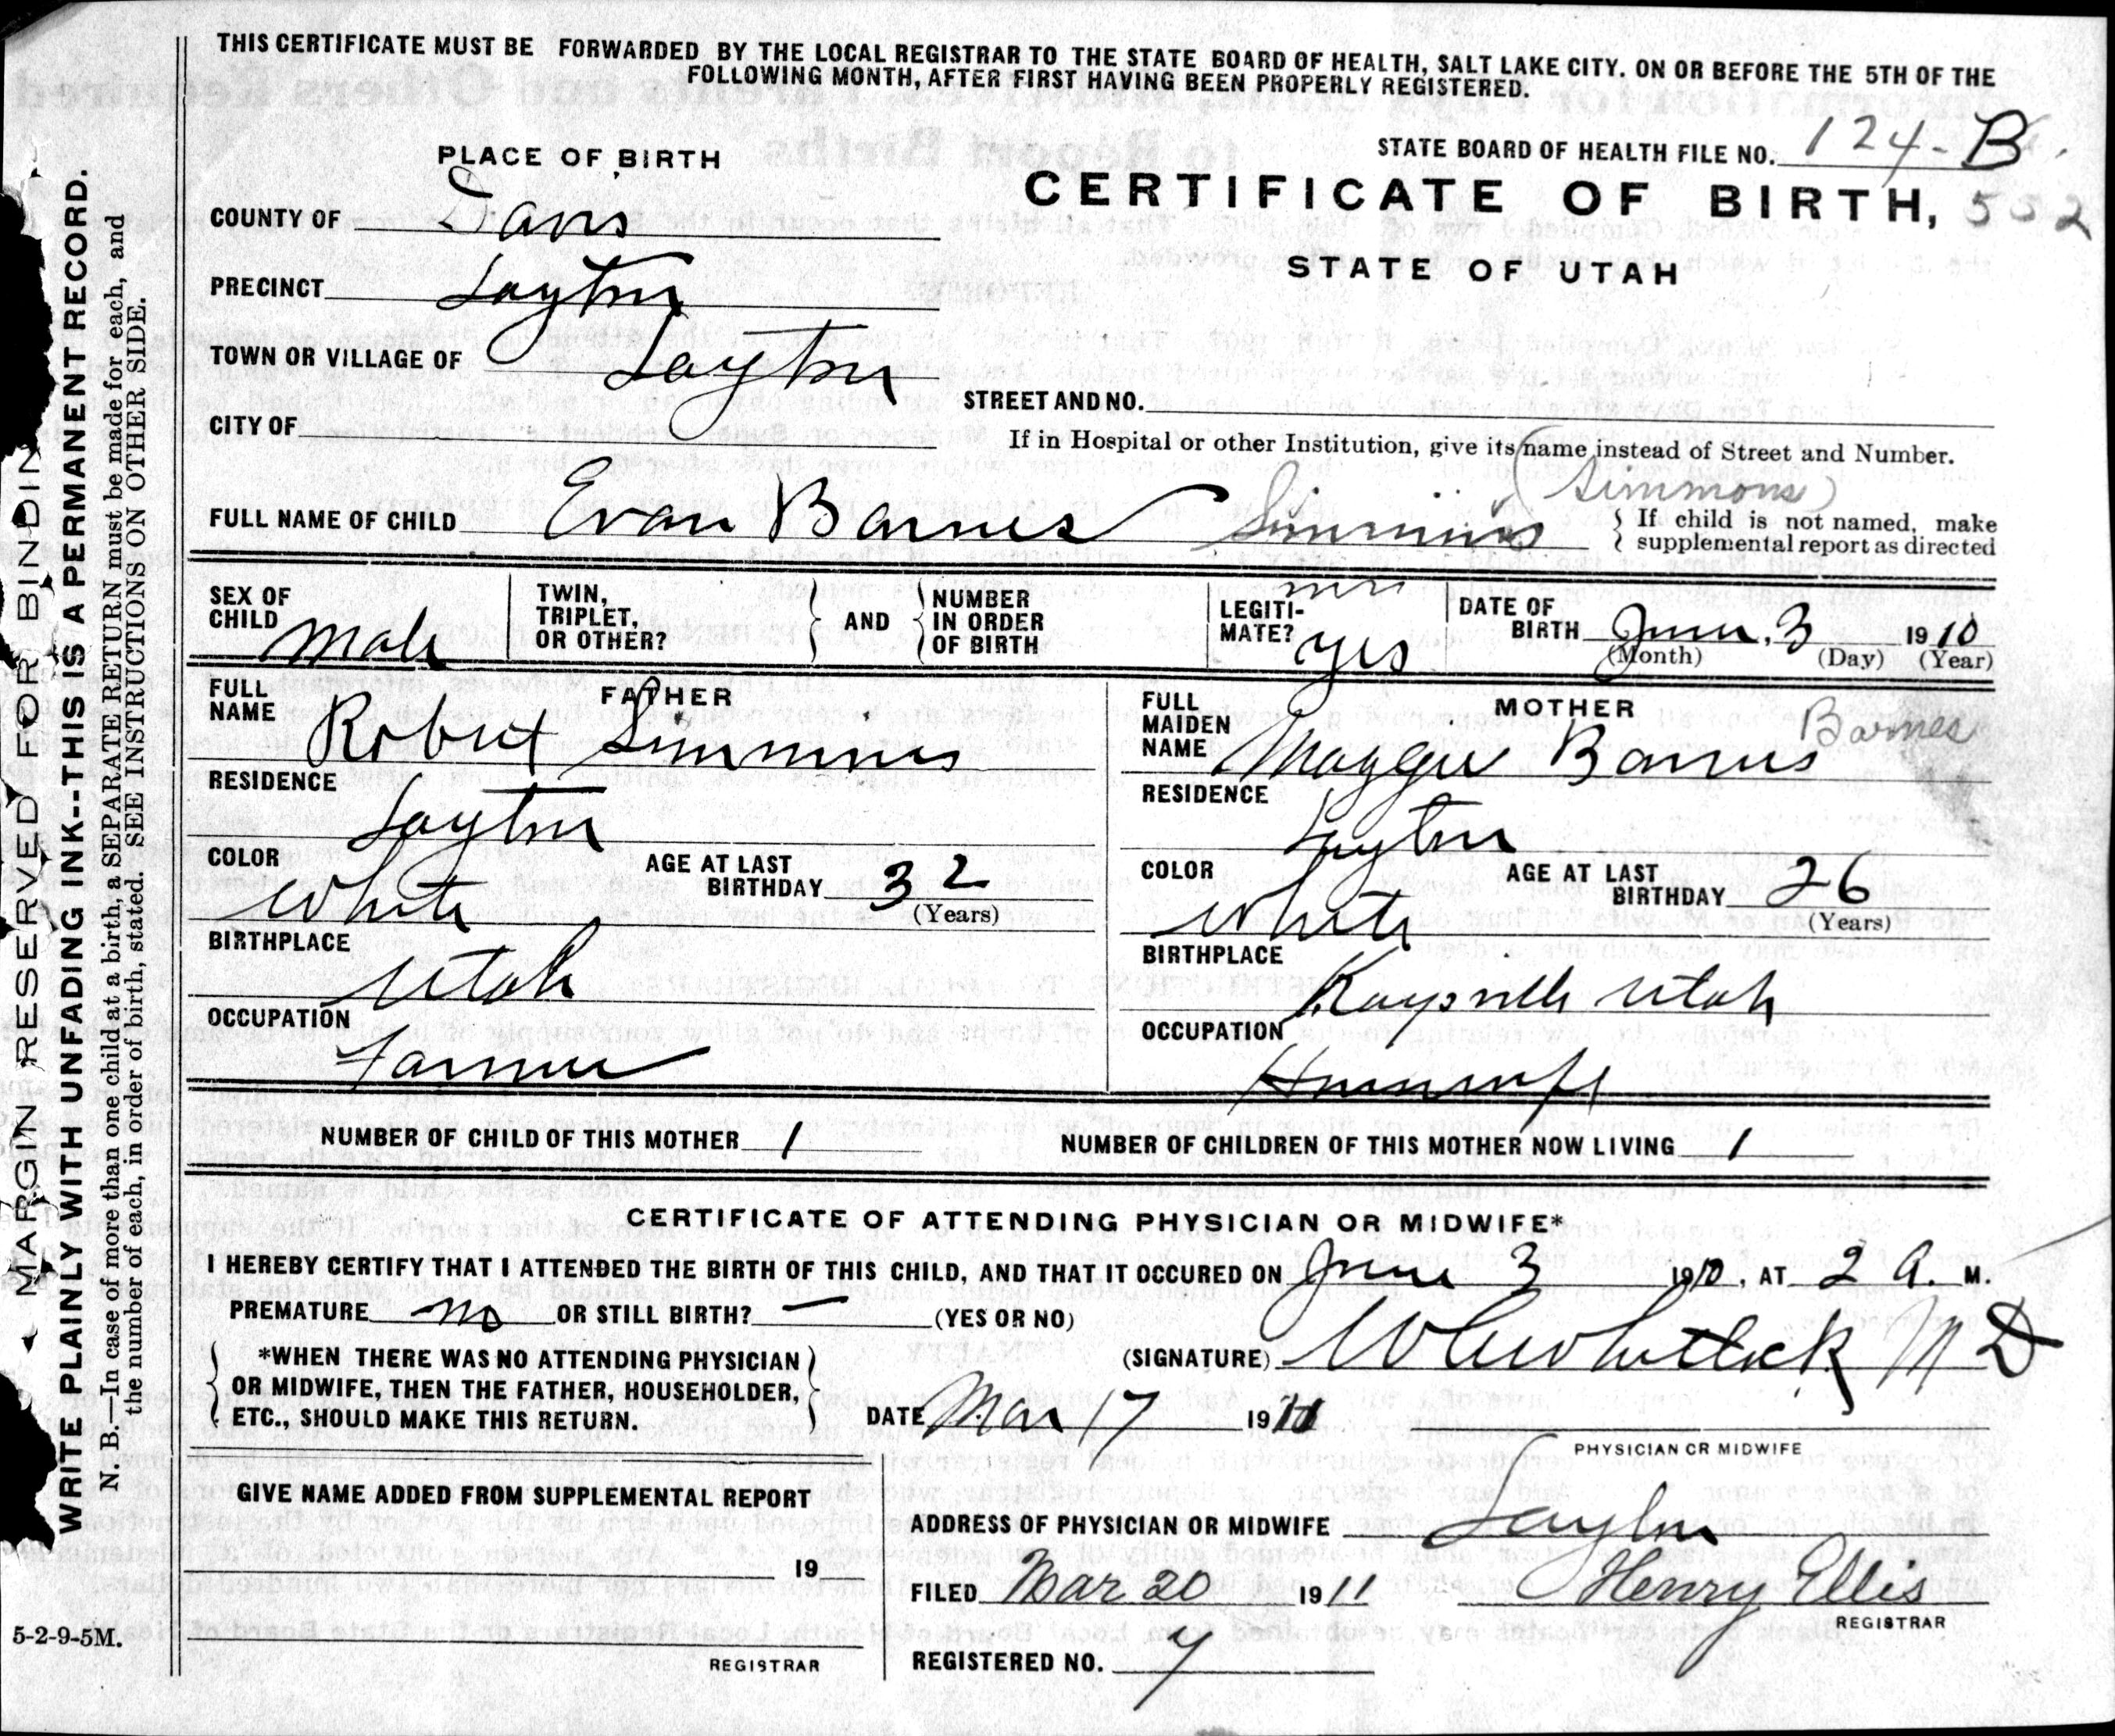 THIS CERTIFICATE MUST BE FORWARDED BY THE LOCAL REGISTRAR TO THE STATE BOARD OF HEALTH, SALT LAKE CITY. ON OR BEFORE THE 5TH OF THE
FOLLOWING MONTH, AFTER FIRST HAVING BEEN PROPERLY REGISTERED.
PLACE OF BIRTH
STATE BOARD OF HEALTH FILE NO. 124-B
CERTIFICATE OF BIRTH, 532
STATE OF UTAH
COUNTY OF Davis
PRECINCT Layton
TOWN OR VILLAGE OF Layton
STREET AND NO.
CITY OF
If in Hospital or other Institution, give its name instead of Street and Number.
(Simmons)
FULL NAME OF CHILD Evan Barnes Simmons
If child is not named, make
supplemental report as directed
SEX OF CHILD Male
TWIN, TRIPLET, OR OTHER?
AND
NUMBER IN ORDER OF BIRTH
LEGITIMATE? yes
DATE OF BIRTH June, 3 1910
(Month) (Day) (Year)
FATHER
FULL NAME Robert Simmons
RESIDENCE
Layton
COLOR White
AGE AT LAST BIRTHDAY 32
(Years)
BIRTHPLACE
Utah
OCCUPATION
Farmer
MOTHER
Barnes
FULL MAIDEN NAME Maggie Barnes
RESIDENCE
Layton
COLOR White
AGE AT LAST BIRTHDAY 26
(Years)
BIRTHPLACE
Kaysville Utah
OCCUPATION
Housewife
NUMBER OF CHILD OF THIS MOTHER 1
NUMBER OF CHILDREN OF THIS MOTHER NOW LIVING 1
CERTIFICATE OF ATTENDING PHYSICIAN OR MIDWIFE*
I HEREBY CERTIFY THAT I ATTENDED THE BIRTH OF THIS CHILD, AND THAT IT OCCURED ON June 3 1910, AT 2 A. M.
PREMATURE no OR STILL BIRTH? — (YES OR NO)
*WHEN THERE WAS NO ATTENDING PHYSICIAN
OR MIDWIFE, THEN THE FATHER, HOUSEHOLDER,
ETC., SHOULD MAKE THIS RETURN.
(SIGNATURE) Whitlock M D
DATE Mar 17 1911
PHYSICIAN OR MIDWIFE
GIVE NAME ADDED FROM SUPPLEMENTAL REPORT
19
REGISTRAR
ADDRESS OF PHYSICIAN OR MIDWIFE Layton
FILED Mar 20 1911 Henry Ellis
REGISTRAR
REGISTERED NO. 7
5-2-9-5M.
MARGIN RESERVED FOR BINDIN
WRITE PLAINLY WITH UNFADING INK--THIS IS A PERMANENT RECORD.
N. B.—In case of more than one child at a birth, a SEPARATE RETURN must be made for each, and
the number of each, in order of birth, stated. SEE INSTRUCTIONS ON OTHER SIDE.